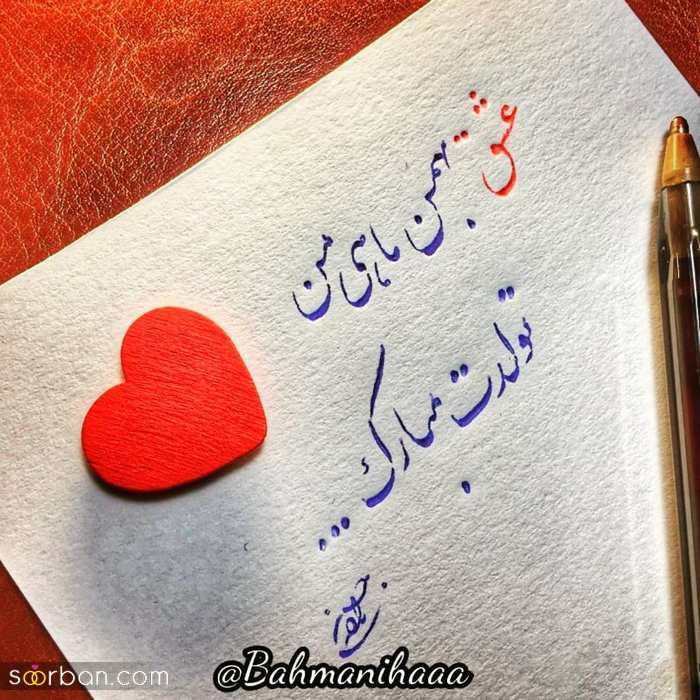 عشق بهمن ماهی من
تولدت مبارک ...
@Bahmanihaaa
soorban.com